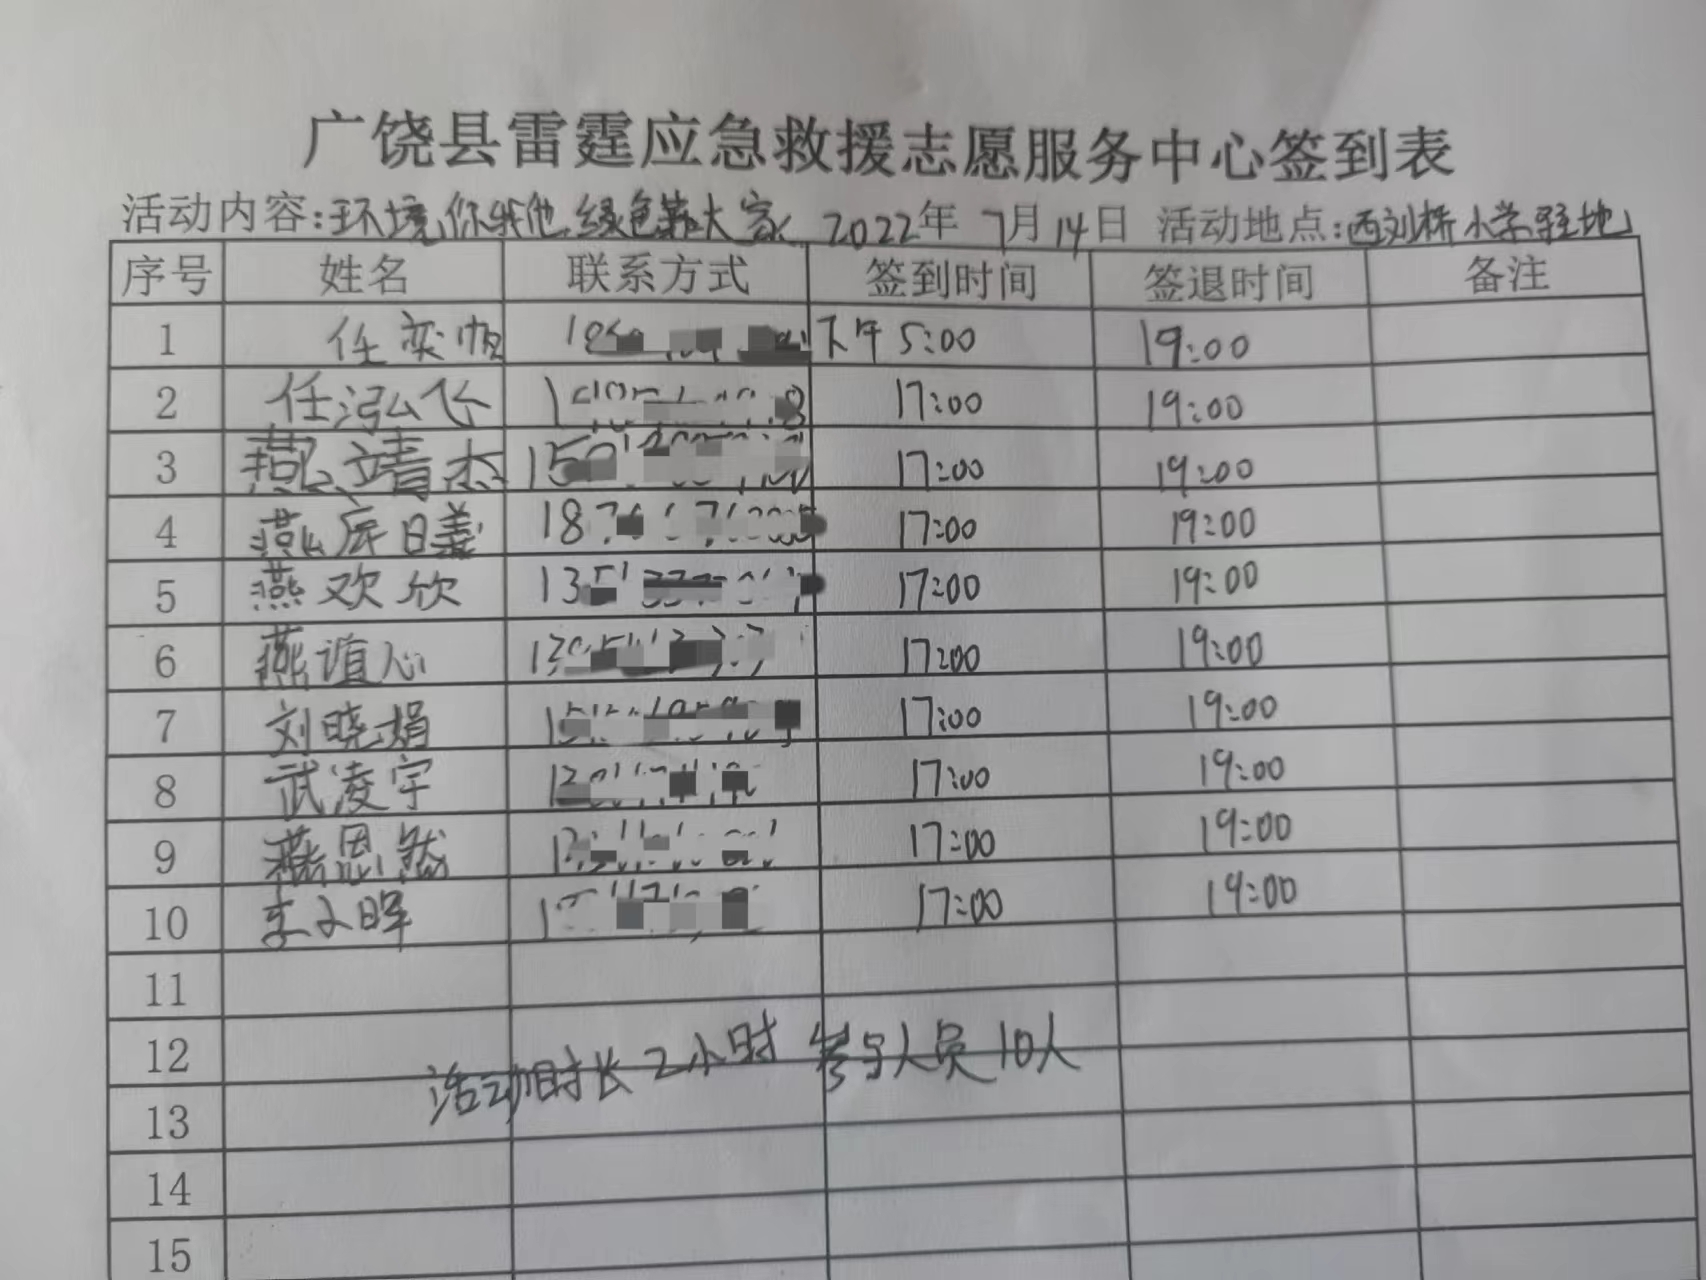 广饶县雷霆应急救援志愿服务中心签到表
活动内容:环境你我他绿色靠大家 2022年 7月14日 活动地点:西刘桥小学驻地
序号 姓名 联系方式 签到时间 签退时间 备注
1 任奕帆 下午5:00 19:00
2 任泓飞 17:00 19:00
3 燕靖杰 150 17:00 19:00
4 燕 187 17:00 19:00
5 燕欢欣 135 17:00 19:00
6 燕谊心 17:00 19:00
7 刘晓娟 17:00 19:00
8 武凌宇 17:00 19:00
9 燕恩然 17:00 19:00
10 李文晖 17:00 19:00
11
12
活动时长2小时 参与人员10人
13
14
15